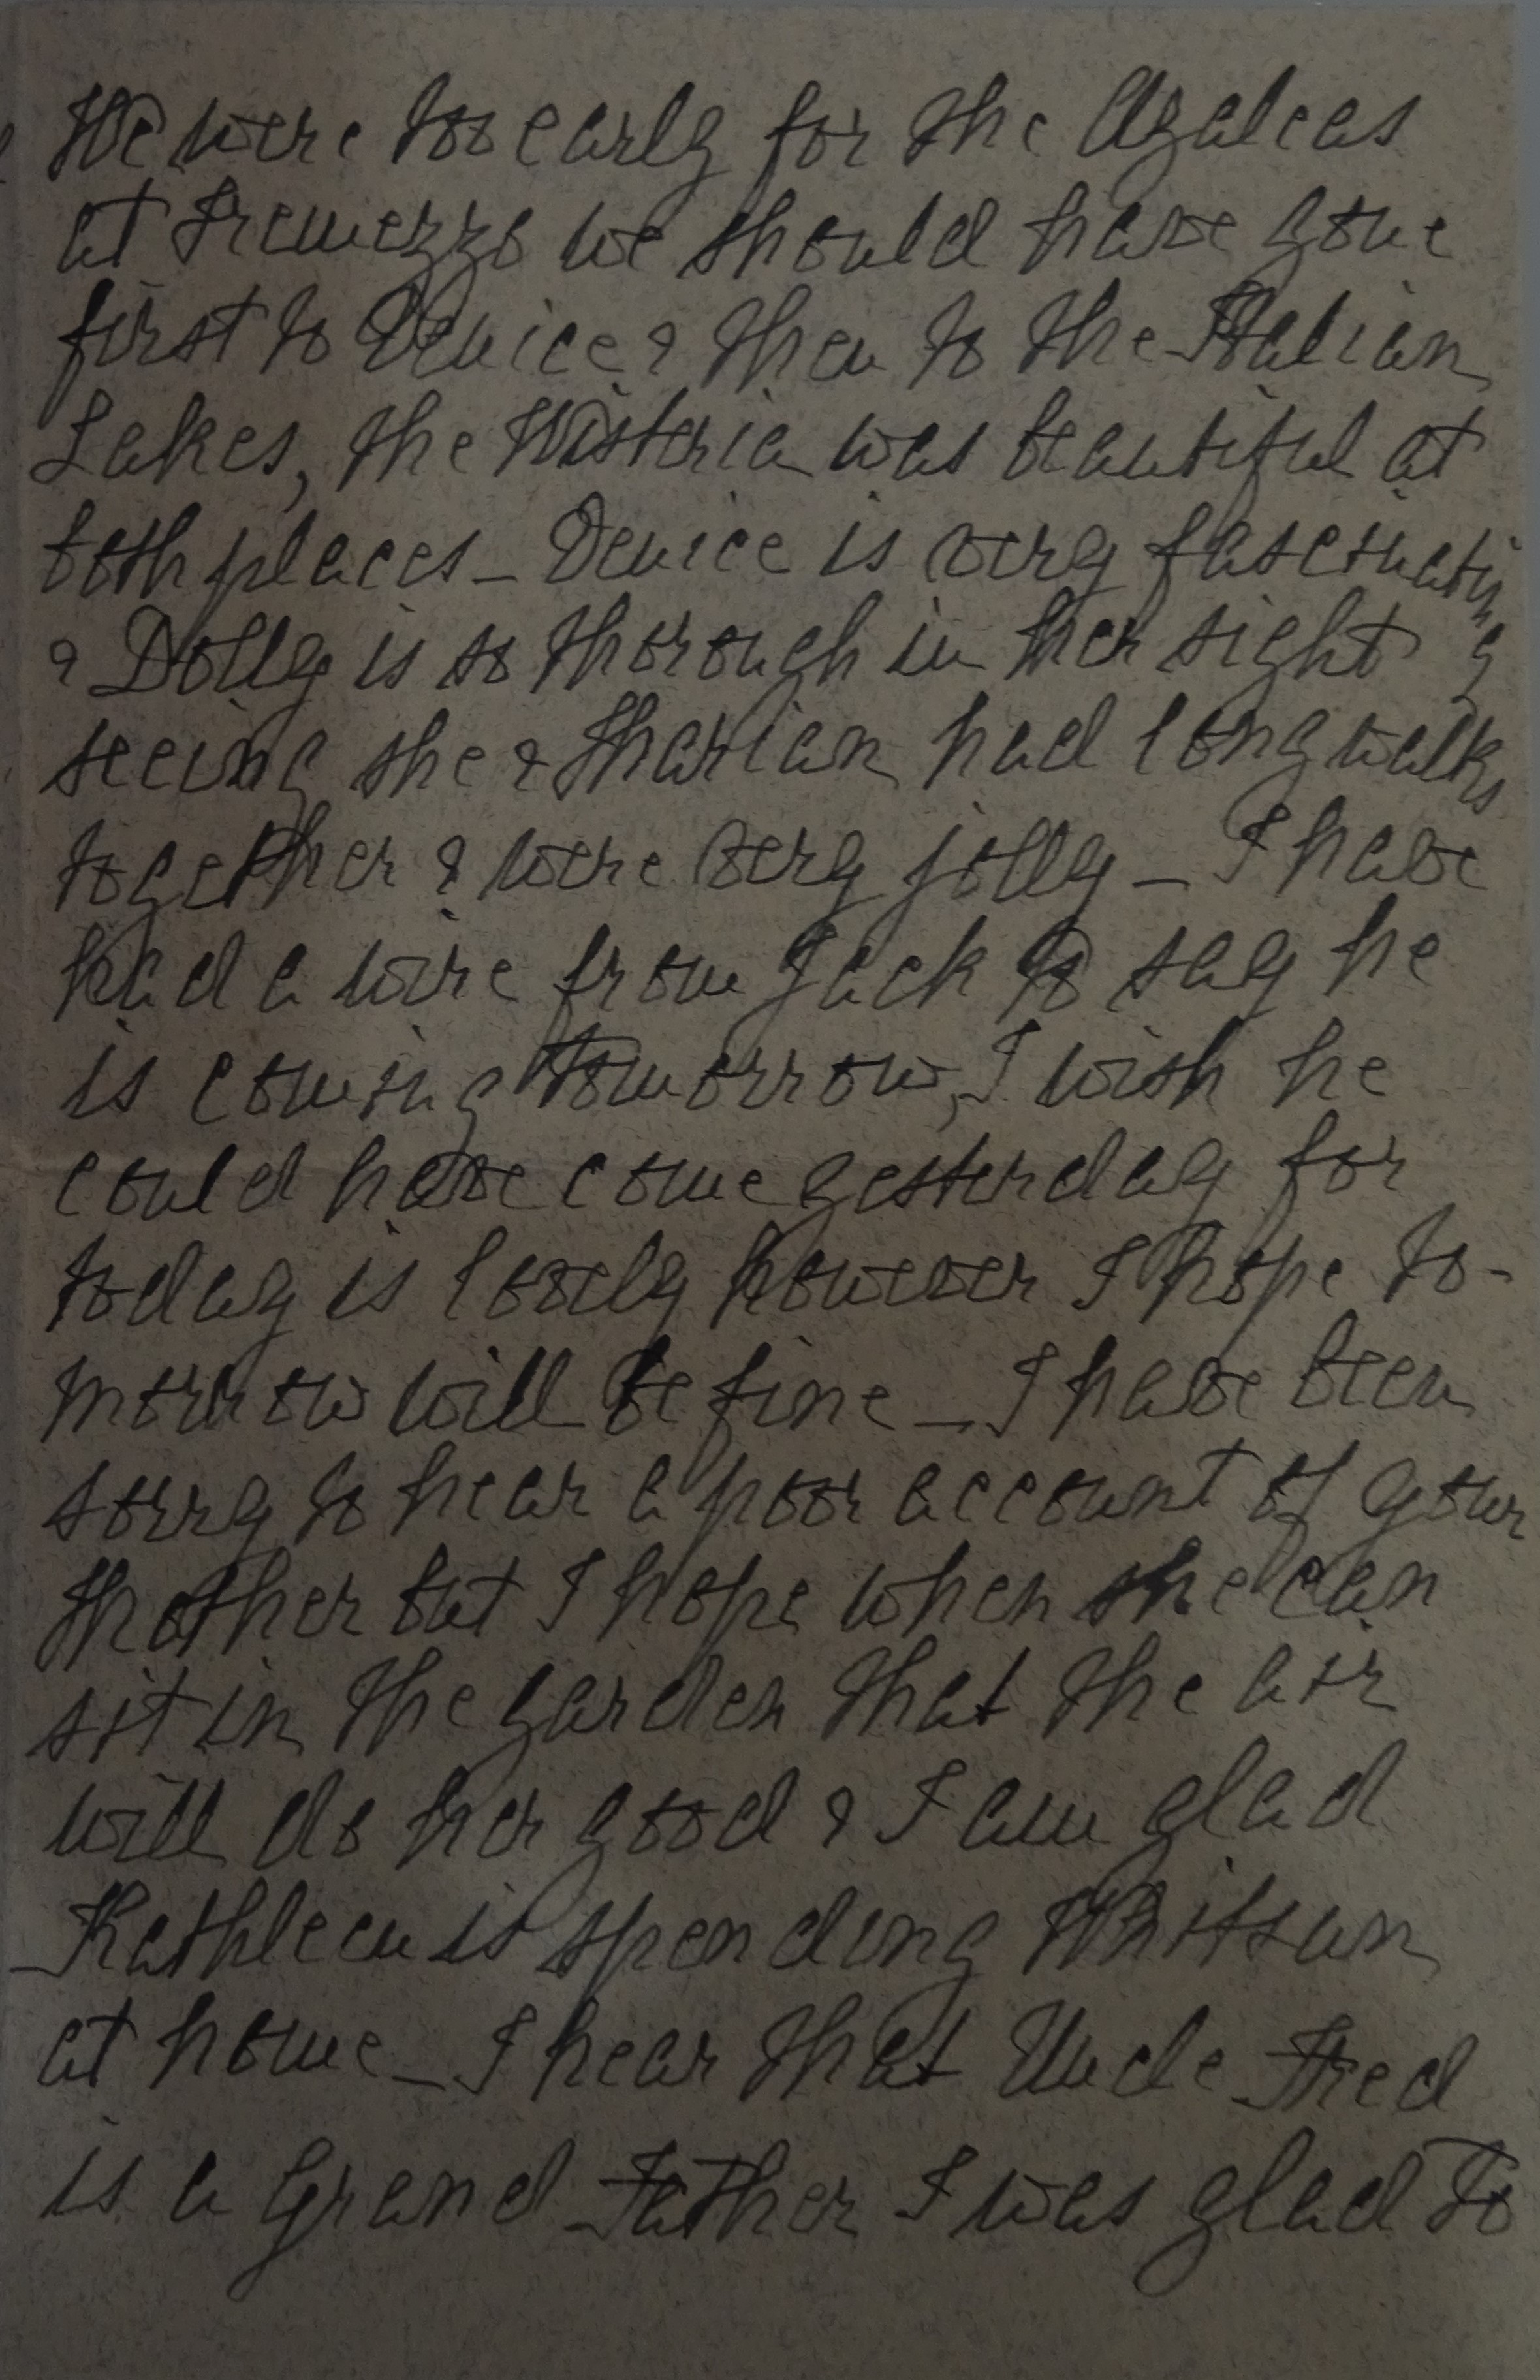 We were too early for the Azaleas
at Tremezzo we should have gone
first to Venice & then to the Italian
Lakes, the Wisteria was beautiful at
both places _ Venice is very fascinating
& Dolly is so thorough in her sight
seeing she & Marian had long walks
together & were very jolly _ I have
had a wire from Jack to say he
is coming tomorrow, I wish he
could have come yesterday for
today is lovely however I hope to-
morrow will be fine _ I have been
sorry to hear a poor account of your
Mother but I hope when she can
sit in the garden that the air
will do her good & I am glad
Kathleen is spending Whitsun
at home _ I hear that Uncle Fred
is a Grand Father I was glad to